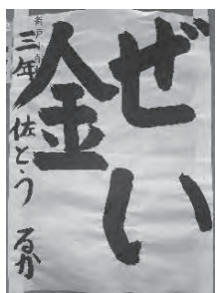 ぜい
金
三年 佐とう るか